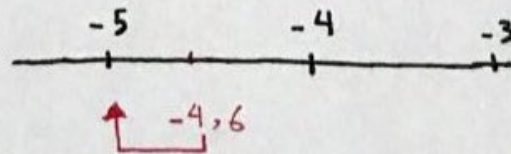 -5 -4 -3
-4,6